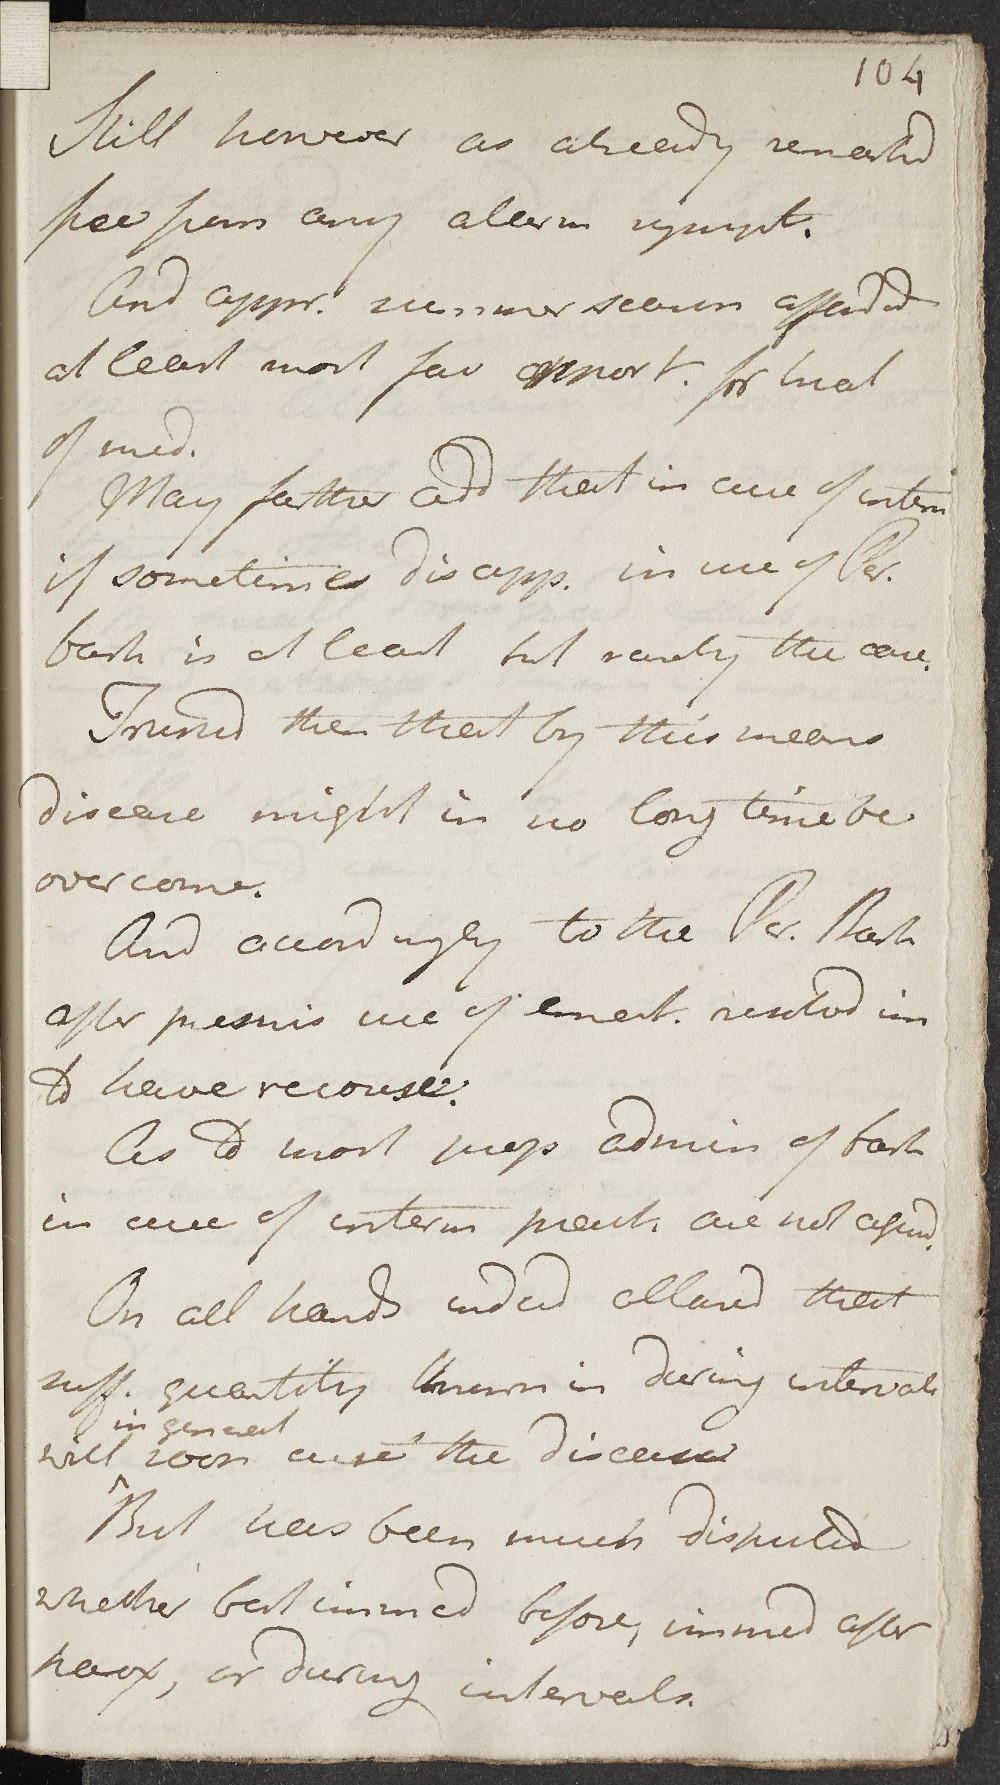 104
Still however as already remarkd
free from any alarm sympt.
And appr. summer season affordd
at least most fav opport. for trial
of med.
May farther add that in cure of interm
if sometimes disapp. in use of Per.
bark is at least but rarely the case.
Trusted then that by this means
disease might in no long time be
overcome.
And accordingly to the Per. Bark
after premis use of emet. resolvd im
to have recourse.
As to most prop admin of bark
in cure of interm pract. are not agreed.
On all hands indeed allowd that
suff. quantity thrown in during intervals
in general
will soon cure the disease
But has been much disputed
whether best immed before, immed after
parox, or during intervals.